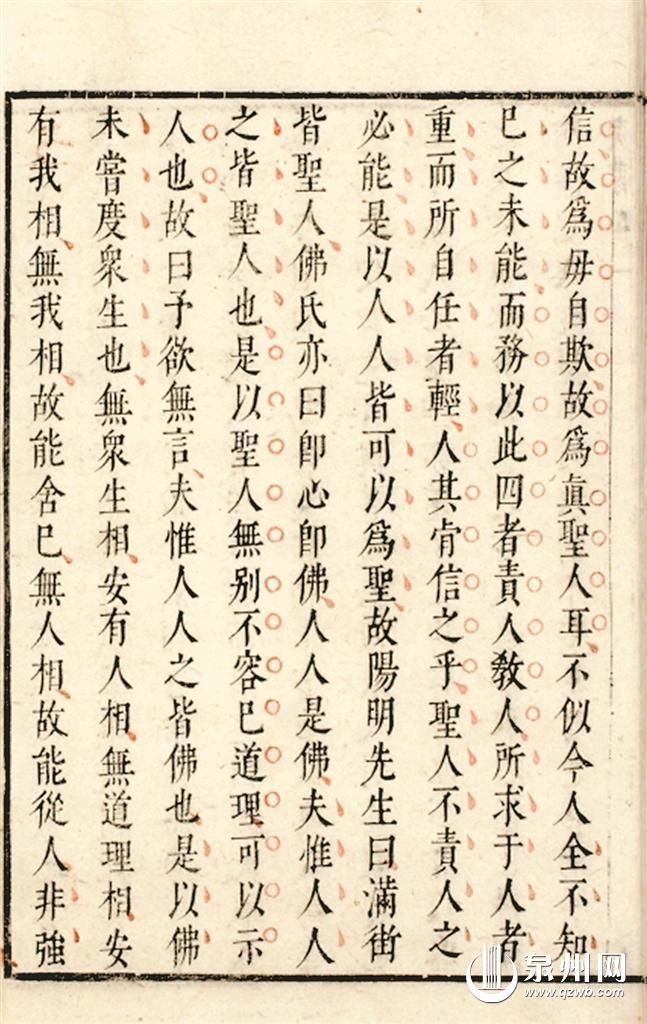 信故爲毋自欺故爲眞聖人耳不似今人全不知
已之未能而務以此四者責人敎人所求于人者
重而所自任者輕人其肯信之乎聖人不責人之
必能是以人人皆可以爲聖故陽明先生曰滿街
皆聖人佛氏亦曰卽心卽佛人人是佛夫惟人人
之皆聖人也是以聖人無别不容已道理可以示
人也故曰予欲無言夫惟人人之皆佛也是以佛
未嘗度衆生也無衆生相安有人相無道理相安
有我相無我相故能舍已無人相故能從人非強
泉州网
www.qzwb.com